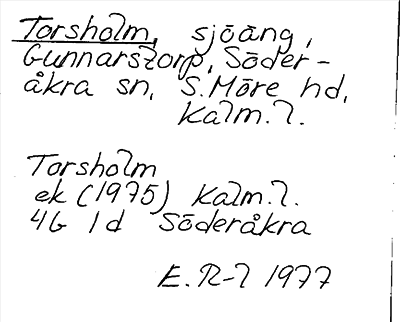 Torsholm, sjöäng,
Gunnarstorp, Söder-
åkra sn, S. Möre hd,
Kalm. l.
Torsholm
ek (1975) Kalm. l.
4G 1d Söderåkra
E. R-l 1977